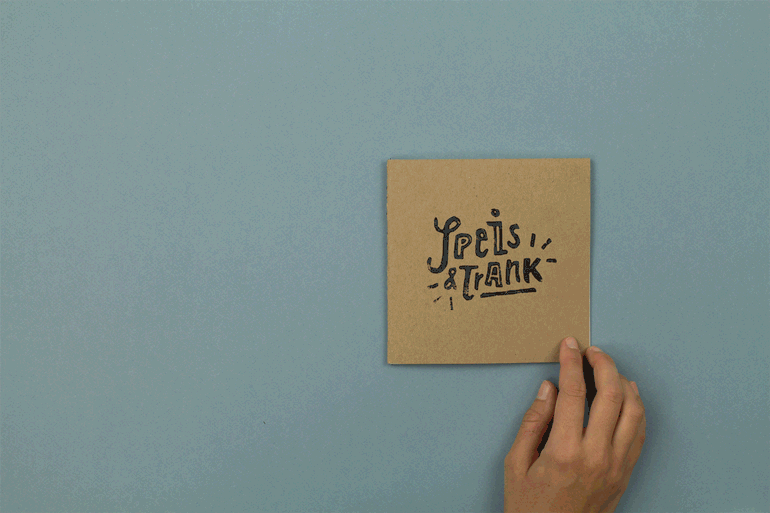 Speis
& Trank